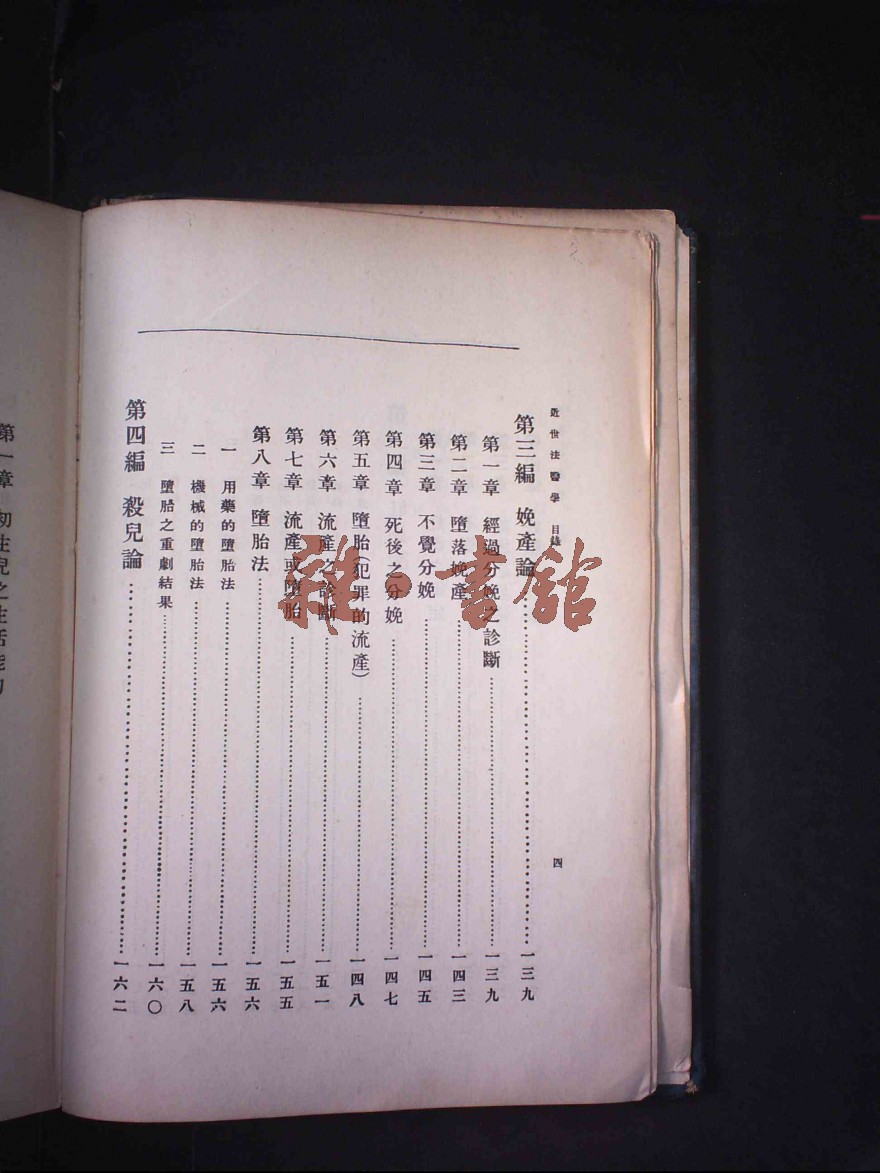 近世法醫學 目錄 四
第三編 娩產論 一三九
第一章 經過分娩之診斷 一三九
第二章 墮落娩產 一四三
第三章 不覺分娩 一四五
第四章 死後之分娩 一四七
第五章 墮胎(犯罪的流產) 一四八
第六章 流產之診斷 一五一
第七章 流產或墮胎 一五五
第八章 墮胎法 一五六
一 用藥的墮胎法 一五六
二 機械的墮胎法 一五八
三 墮胎之重劇結果 一六〇
第四編 殺兒論 一六二
第一章 初生兒之生活能力
雜·書館